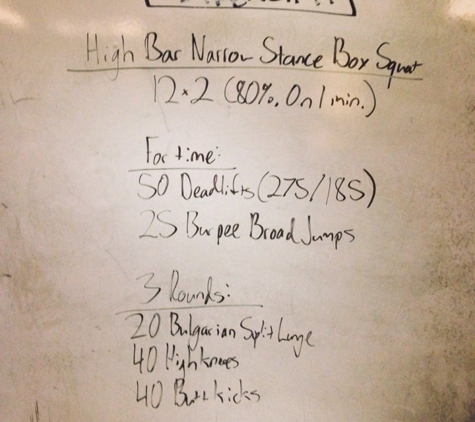 High Bar Narrow Stance Box Squat
12x2 (80%, On 1 min.)
For time:
50 Deadlifts (275/185)
25 Burpee Broad Jumps
3 Rounds:
20 Bulgarian Split Lunge
40 High knees
40 Butt kicks